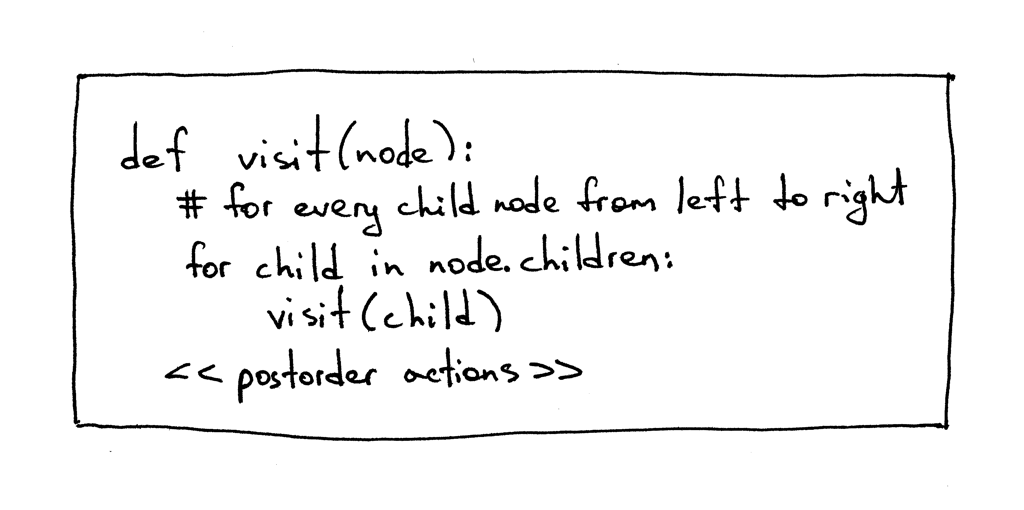 def visit(node):
# for every child node from left to right
for child in node.children:
visit(child)
<< postorder actions >>